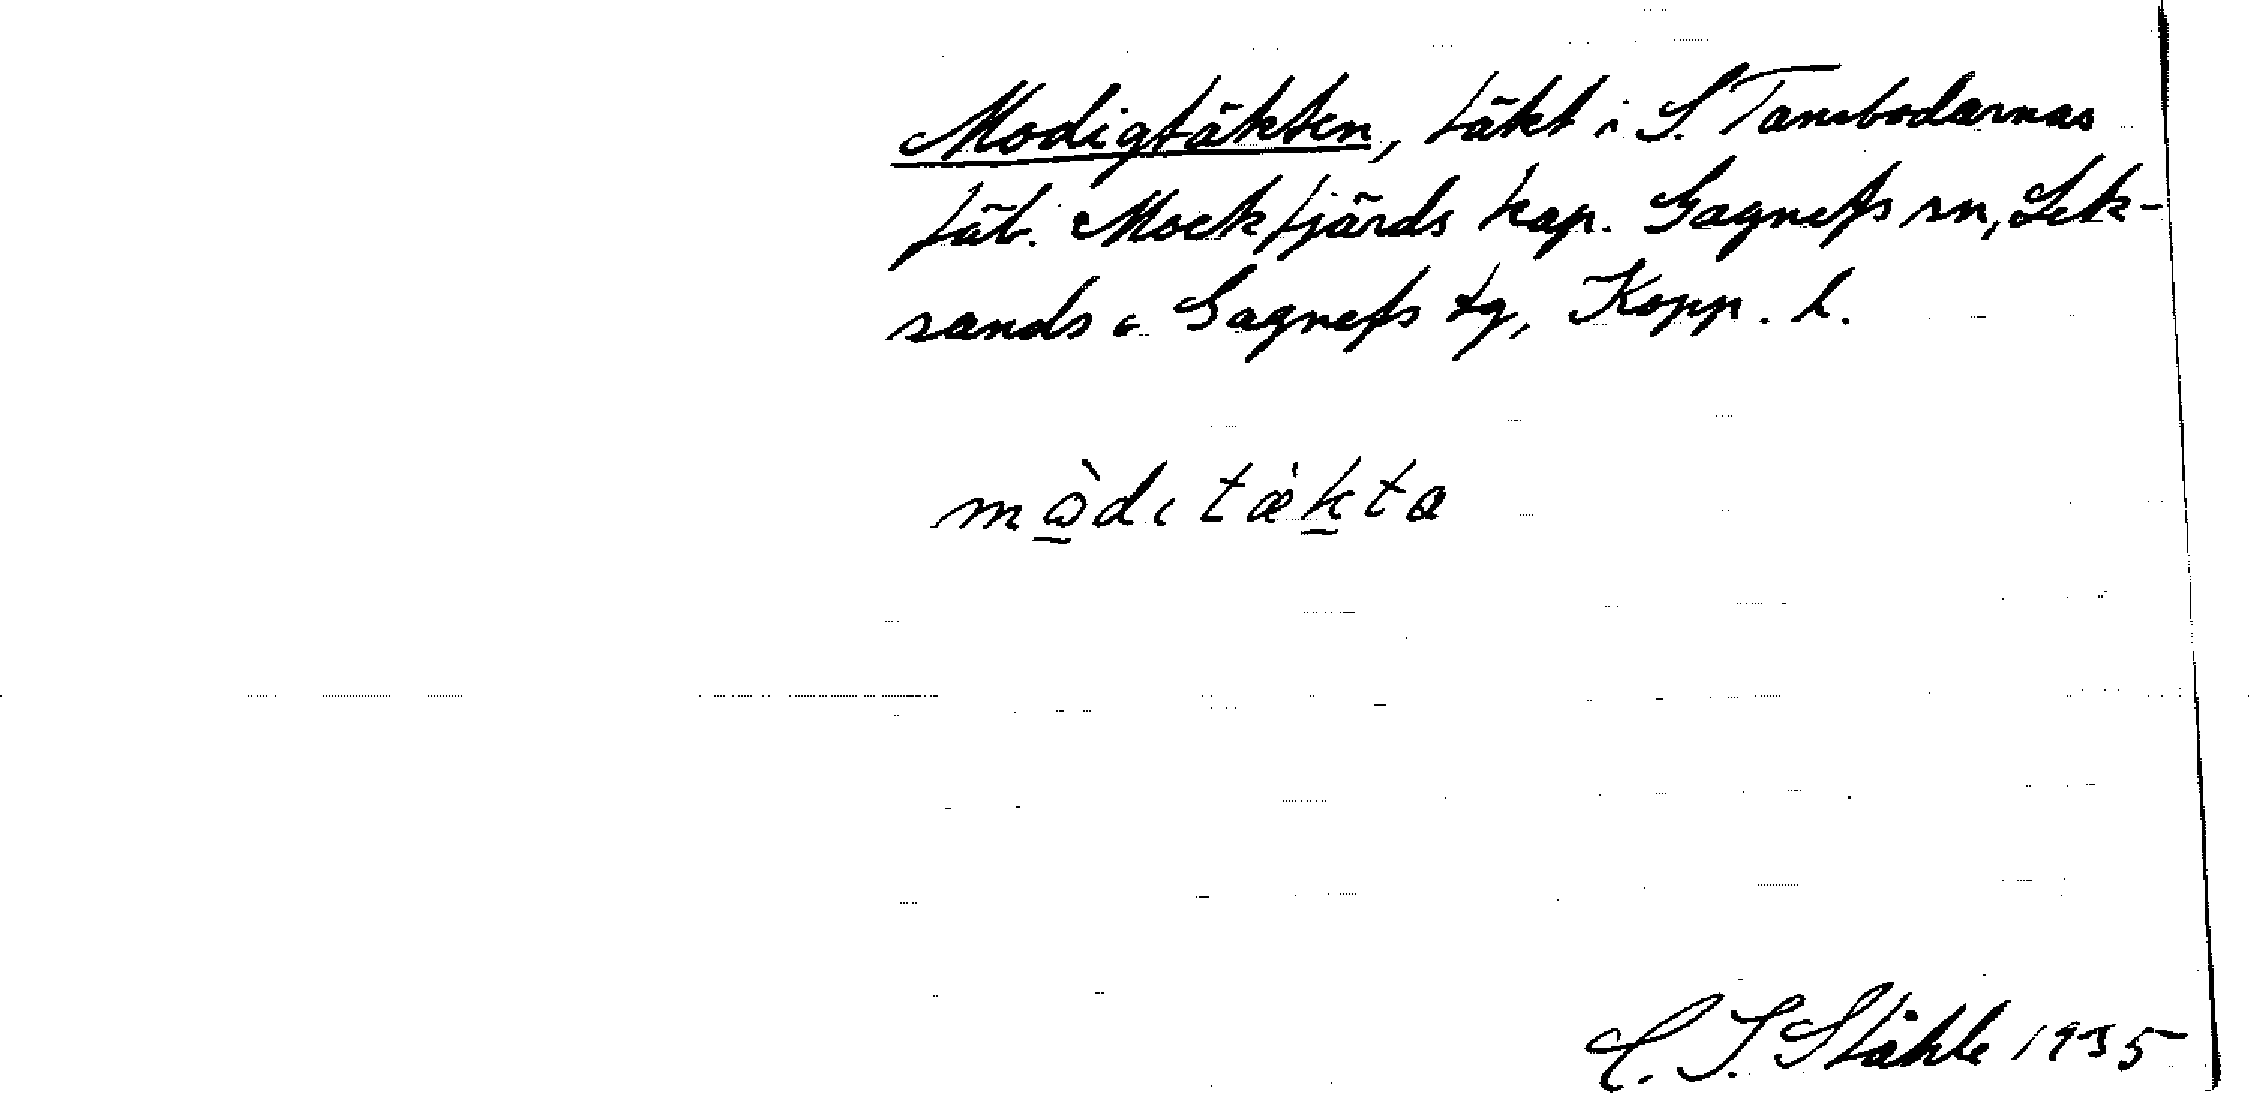 Modigtäkten, täkt i S. Tansbodarnas
fäb. Mockfjärds kap. Gagnefs sn, Lek-
sands o. Gagnefs tg, Kopp. l.
mɷ̀dɩtæ̀kta
C. I. Ståhle 1935